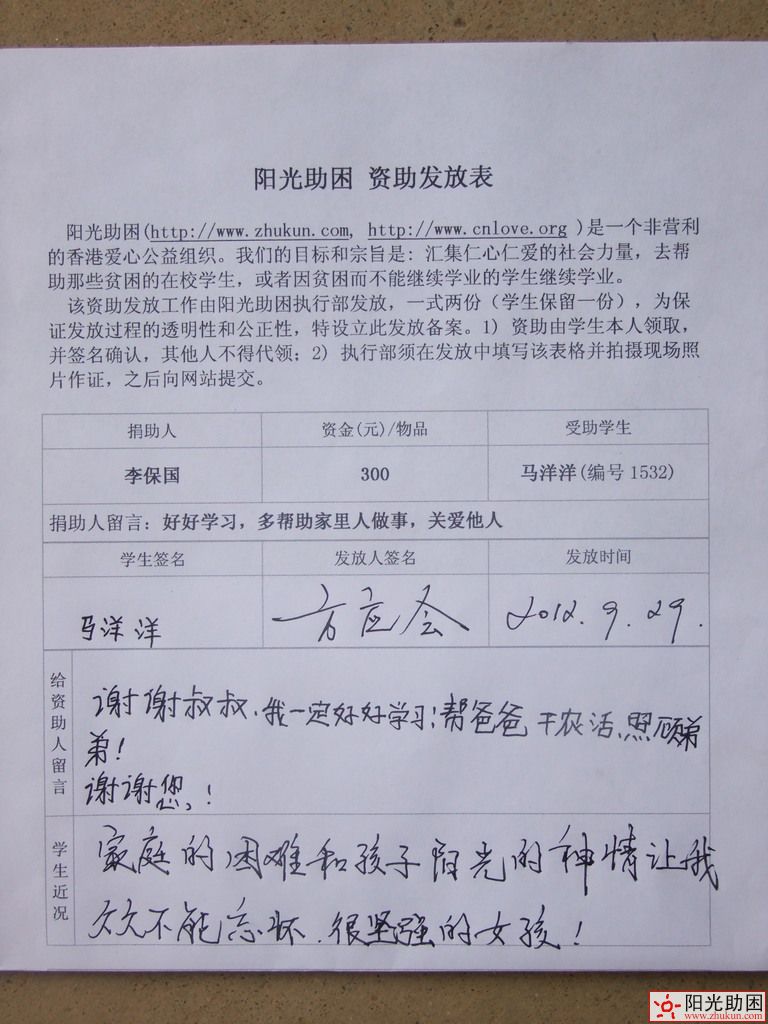 阳光助困 资助发放表
阳光助困(http://www.zhukun.com, http://www.cnlove.org )是一个非营利
的香港爱心公益组织。我们的目标和宗旨是: 汇集仁心仁爱的社会力量，去帮
助那些贫困的在校学生，或者因贫困而不能继续学业的学生继续学业。
该资助发放工作由阳光助困执行部发放，一式两份（学生保留一份），为保
证发放过程的透明性和公正性，特设立此发放备案。1) 资助由学生本人领取，
并签名确认，其他人不得代领；2) 执行部须在发放中填写该表格并拍摄现场照
片作证，之后向网站提交。
捐助人 资金(元)/物品 受助学生
李保国 300 马洋洋(编号 1532)
捐助人留言: 好好学习，多帮助家里人做事，关爱他人
学生签名 发放人签名 发放时间
马洋洋 方应会 2012.9.29.
给资助人留言
谢谢叔叔.我一定好好学习!帮爸爸干农活、照顾弟
弟!
谢谢您!
学生近况
家庭的困难和孩子阳光的神情让我
久久不能忘怀.很坚强的女孩!
阳光助困
www.zhukun.com